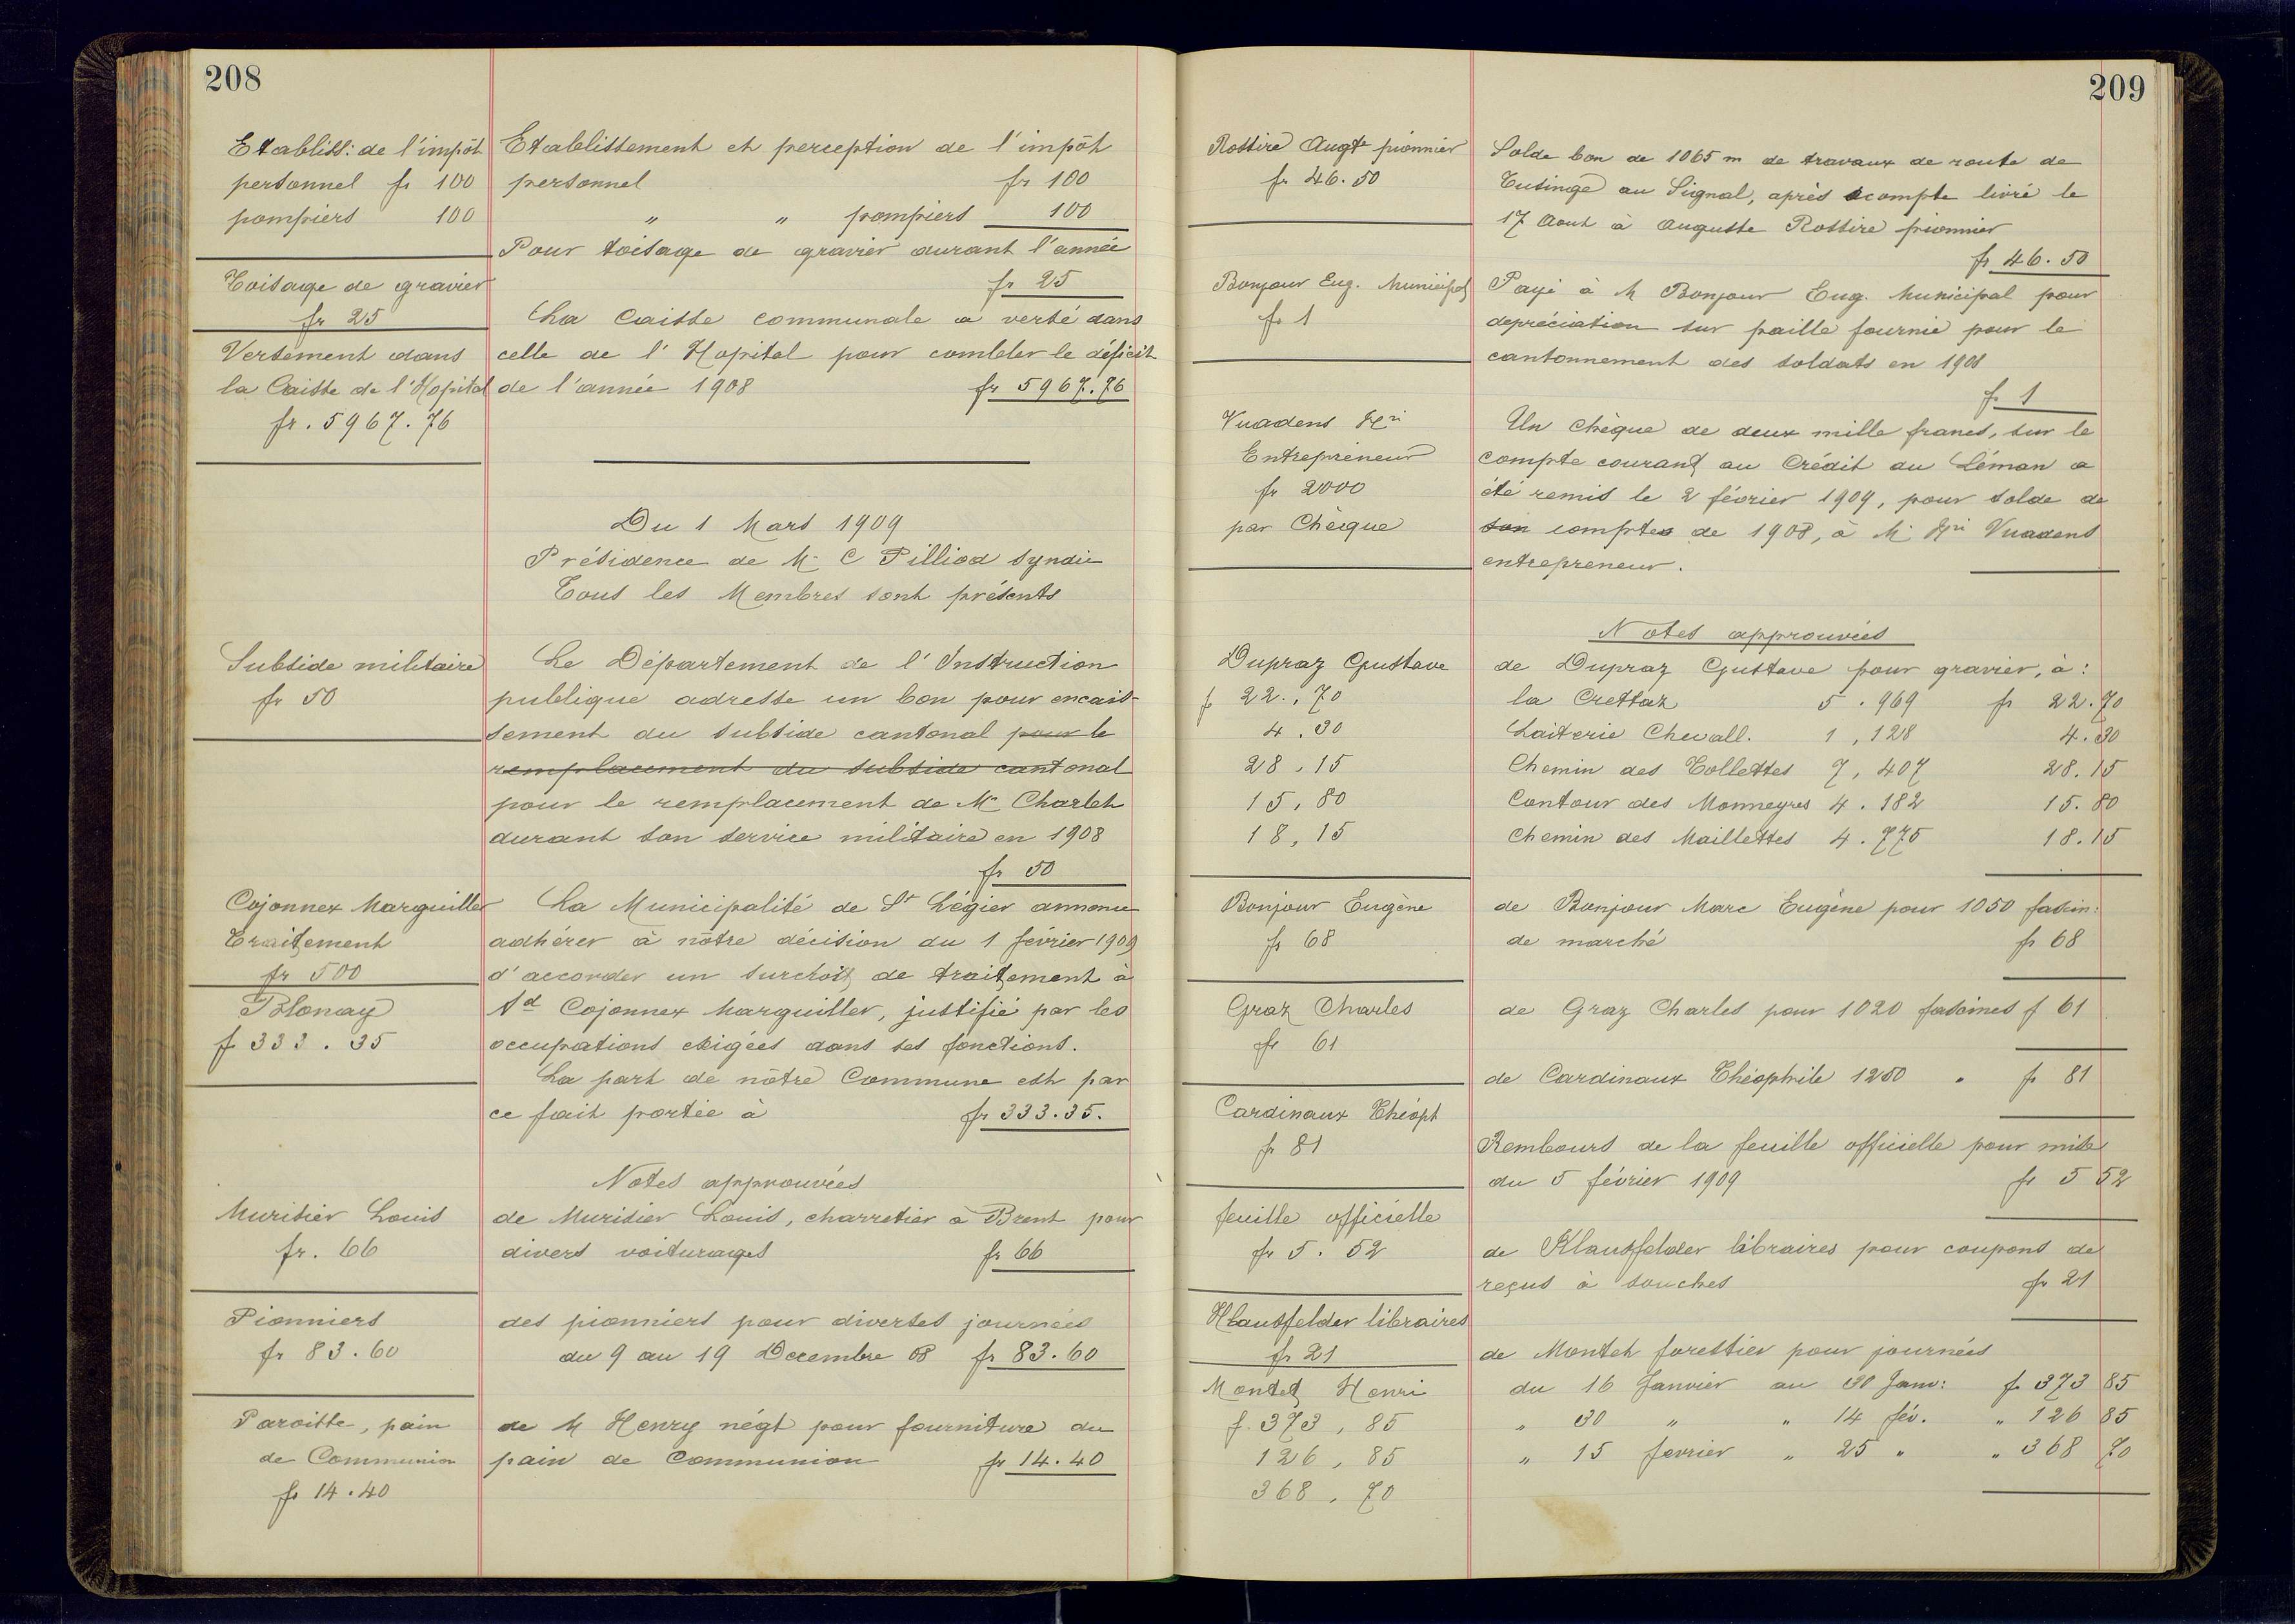 208
Establiss: de l'impôt
personnel fr 100
pompiers 100
Etablissement et perception de l'impôt
personnel fr 100
" " pompiers 100
Toisage de gravier
fr 25
Pour toisage de gravier durant l'année
fr 25
Versement dans
la Caisse de l'Hopital
fr. 5967.76
La Caisse communale a versé dans
celle de l'Hopital pour combler le déficit
de l'année 1908 fr 5967.76
Du 1 Mars 1909
Présidence de Mr C Pilliod syndic
Tous les Membres sont présents
Subside militaire
fr 50
Le Département de l'Instruction
publique adresse un bon pour encais-
sement du subside cantonal pour le
remplacement du subside cantonal
pour le remplacement de Mr Charlet
durant son service militaire en 1908
fr 50
Cojonnex Marguiller
Traitement
fr 500
Blonay
f 333.35
La Municipalité de St Légier annonce
adhérer à nôtre décision du 1 février 1909
d'accorder un surcroit de traitement à
Ad Cojonnex Marguiller, justifié par les
occupations exigées dans ses fonctions.
La part de nôtre Commune est par
ce fait portée à fr 333.35.
Notes approuvées
Murisier Louis
fr. 66
de Murisier Louis, charretier à Brent pour
divers voiturages fr 66
Pionniers
fr 83.60
des pionniers pour diverses journées
du 9 au 19 Decembre 08 fr 83.60
Paroisse, pain
de Communion
fr 14.40
de M Henry négt pour fourniture du
pain de Communion fr 14.40
209
Rossire Augte pionnier
fr 46.50
Solde bon de 1065 m de travaux de route de
Tusinge au Signal, après acompte livré le
17 Aout à Auguste Rossire pionnier
fr 46.50
Bonjour Eug. Municipal
fr 1
Payé à M Bonjour Eug. Municipal pour
depréciation sur paille fournie pour le
cantonnement des soldats en 1908
fr 1
Vuadens Hri
Entrepreneur
fr 2000
par Chèque
Un chèque de deux mille francs, sur le
compte courant au Crédit du Léman a
été remis le 2 février 1909, pour solde de
son comptes de 1908, à Mr Hri Vuadens
entrepreneur.
Notes approuvées
Dupraz Gustave
f 22.,70
4,30
28,15
15,80
18,15
de Dupraz Gustave pour gravier, à:
la Crettaz 5.969 fr 22.70
Laiterie Chevall. 1,128 4.30
Chemin des Tollettes 7,407 28.15
Contour des Monneyres 4.182 15.80
Chemin des Maillettes 4.775 18.15
Bonjour Eugène
fr 68
de Bonjour Marc Eugène pour 1050 fascin:
de marché fr 68
Graz Charles
fr 61
de Graz Charles pour 1020 fascines f 61
Cardinaux Théoph
fr 81
de Cardinaux Théophile 1250 " fr 81
feuille officielle
fr 5.52
Rembours de la feuille officielle pour mise
du 5 février 1909 fr 5 52
Klausfelder libraires
fr 21
de Klausfelder libraires pour coupons de
reçus à souches fr 21
Montet Henri
f. 373,85
126,85
368,70
de Montet forestier pour journées
du 16 Janvier au 30 Janv: fr 373 85
" 30 " " 14 fév. " 126 85
" 15 fevrier " 25 " " 368 70